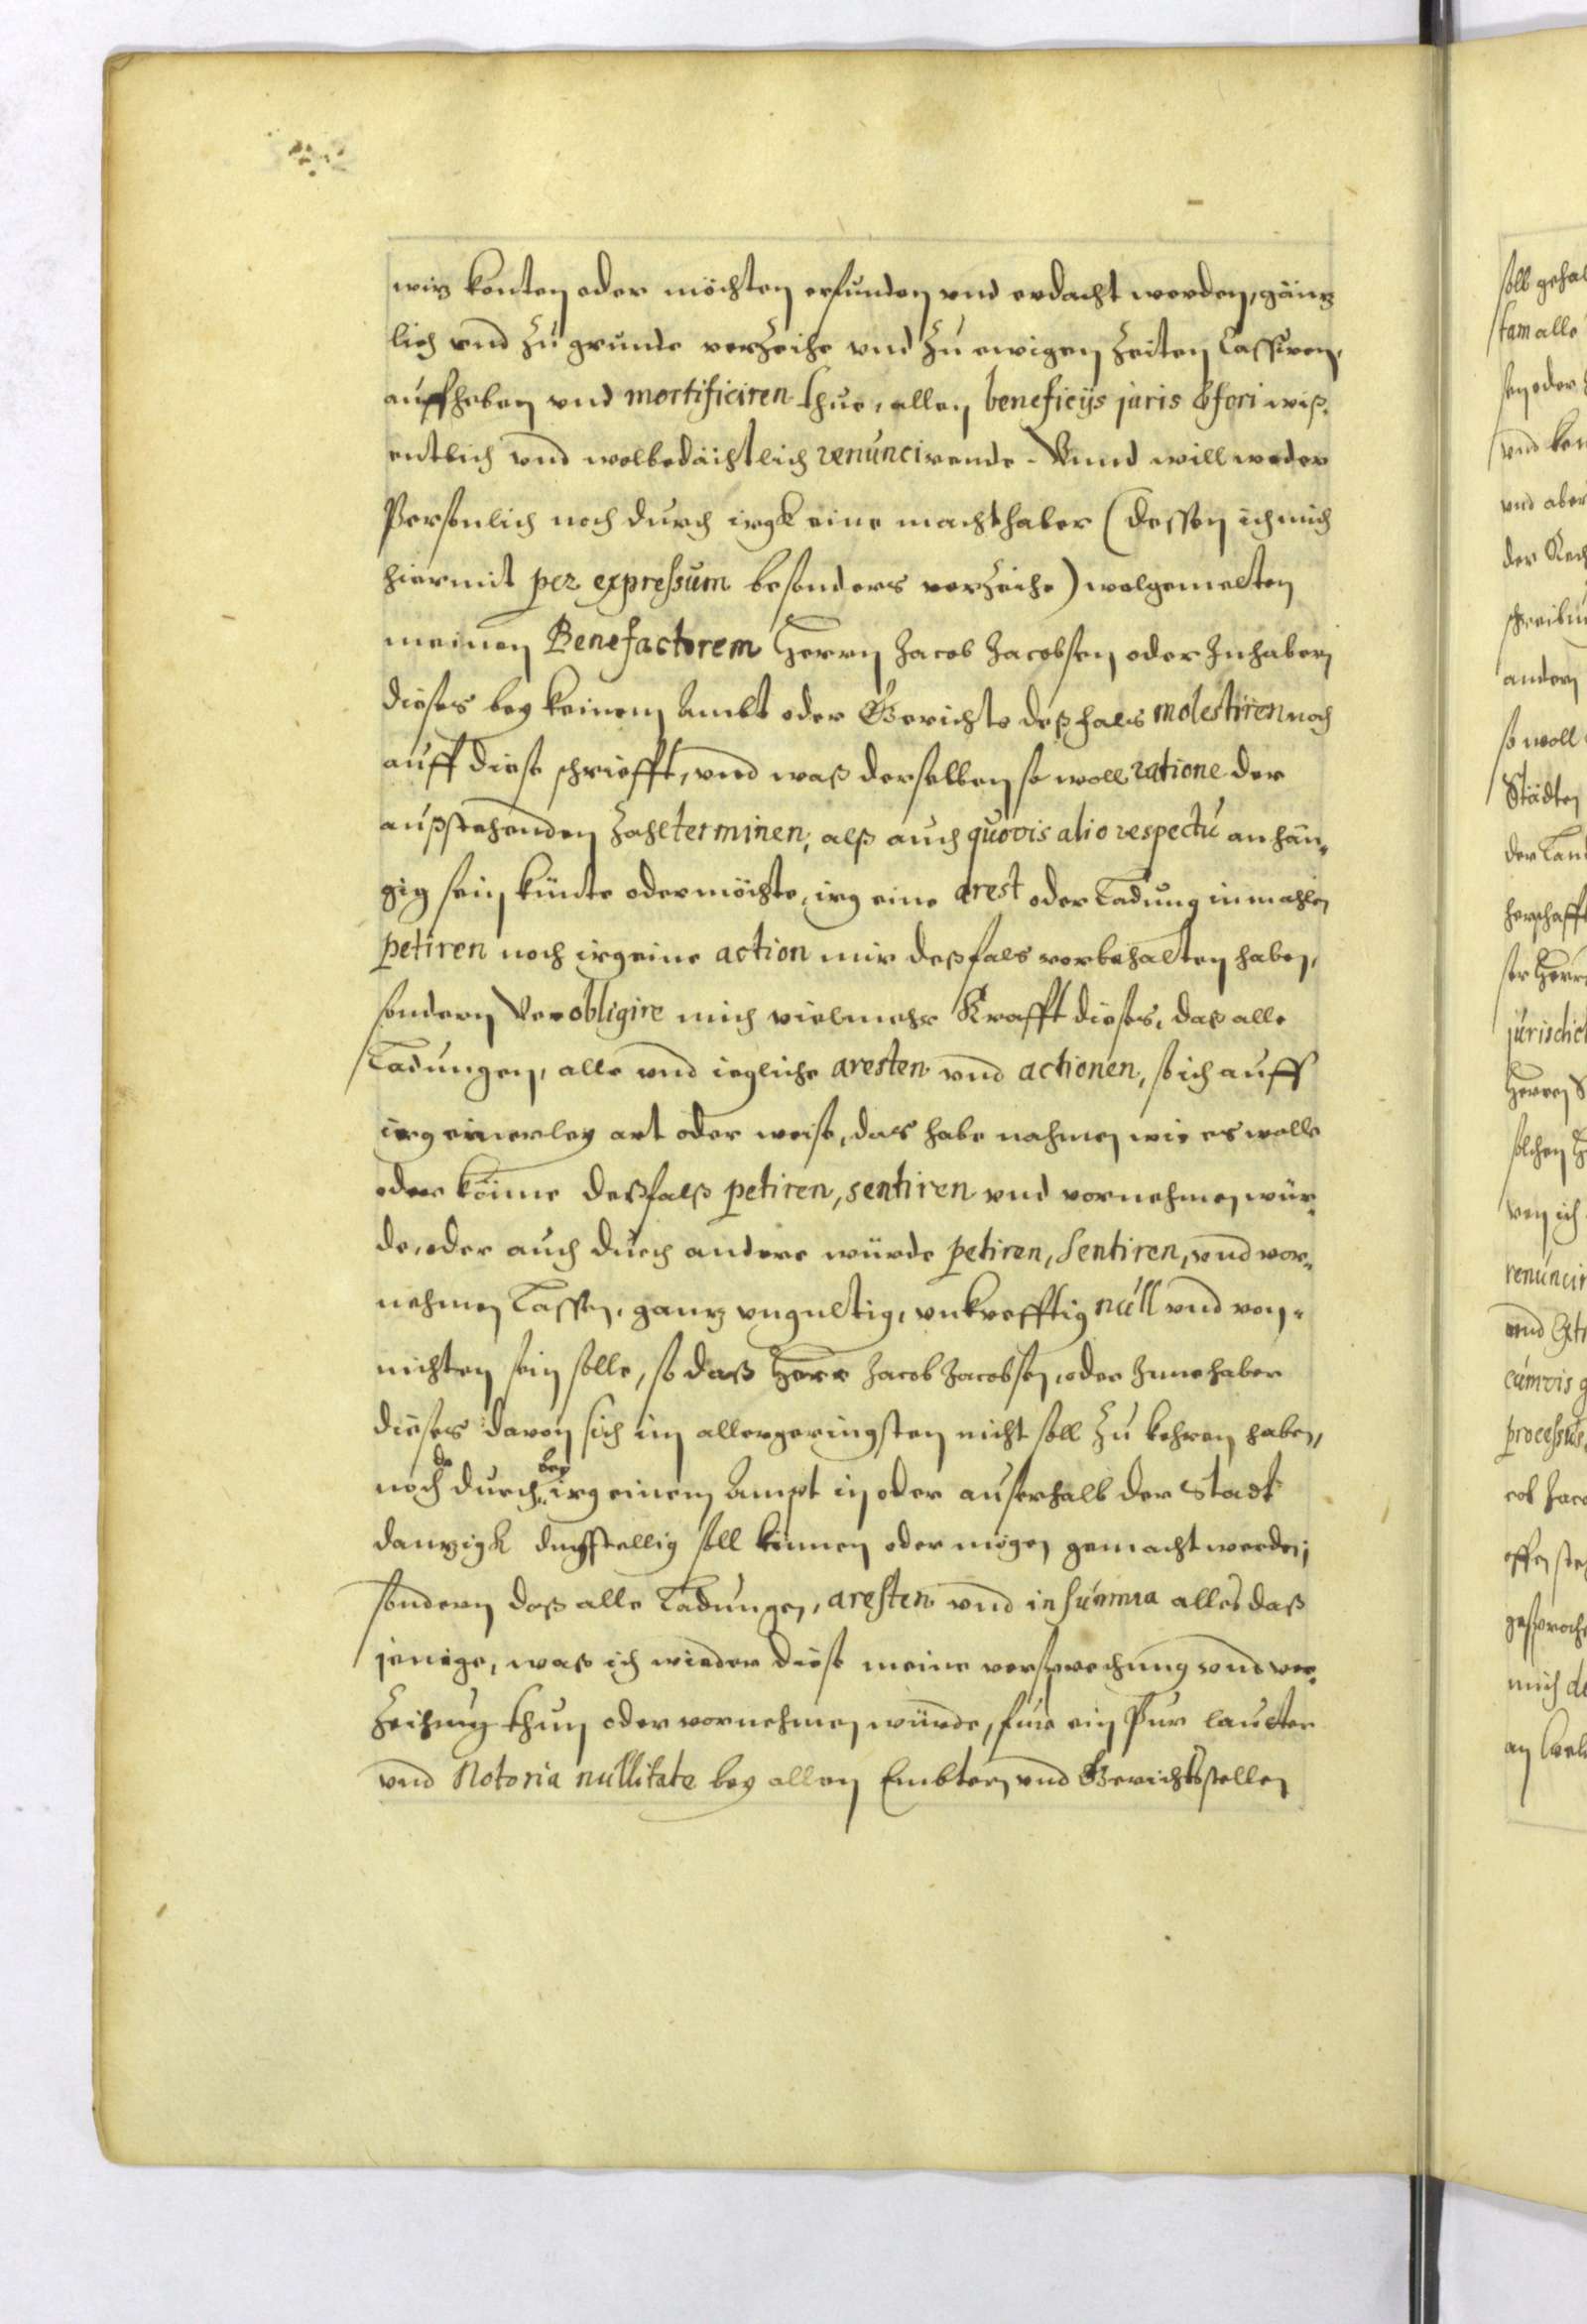 wirz konten oder möchten erfunden vnd erdacht werden, gäntz
lich vnd zu grunde verzeihe vnd zu ewigen zeiten Cassiren,
auffheben vnd mortificiren thue, allen beneficijs juris & fori wiß,
entlich vnd wolbedächtlich renúncirende. Vnnd will weder
Persönlich noch durch irgk eine machthaber (dessen ich mich
hiermit per expressum besonders verzeihe) wolgemelten
meinen Benefactorem Herrn Jacob Jacobsen oder Inhabern
dieses bey keinem Ambt oder Gerichte deßhals molestiren noch
auff diese schriefft, vnd waß derselben so woll ratione der
außstehenden Zahlterminen, alß auch quovis alio respectú anhän,
gig sein künte oder möchte, irg eine arest oder Ladung inmahlen
petiren noch irg eine action mir deßfals vorbehalten haben,
sondern Verobligire mich vielmehr Krafft dieses, daß alle
Ladungen, alle vnd iegliche aresten vnd actionen, so ich auff
irg einerley art oder weise, das habe nahmen wie es wolle
oder könne deßfalß petiren, sentiren vnd vornehmen wür,
de, oder auch durch andere würde petiren, sentiren, vnd vor,
nehmen Lassen, gantz vngultig, vnkrefftig núll vnd von,
nichten sein solle, so daß Herr Jacob Jacobsen, oder Innehaber
dieses davon sich im allergeringsten nicht soll zu kehren haben,
noch durch bey irg einem Ampt in oder auserhalb der Stadt
dantzigk stellig soll können oder mögen gemacht werden;
sondern daß alle Ladungen, aresten vnd in súmma alles daß
jenige, waß ich wieder diese meine versprechung vnd ver,
zeihung thun oder vornehmen würde, für ein Pur lauter
vnd Notoria nullitate bey allen Embtern vnd Gerichtsstellen
soll gehal
tam alle
sen oder
vnd
vnd aber
der Rech
andern
so woll
Städten
der Lan
herschafft
ster Herr
jurisdict
Herren
solchen
ren ich
renúncir
cúmvis
processus,
cob Jaco
offen ste
gesproch
mich